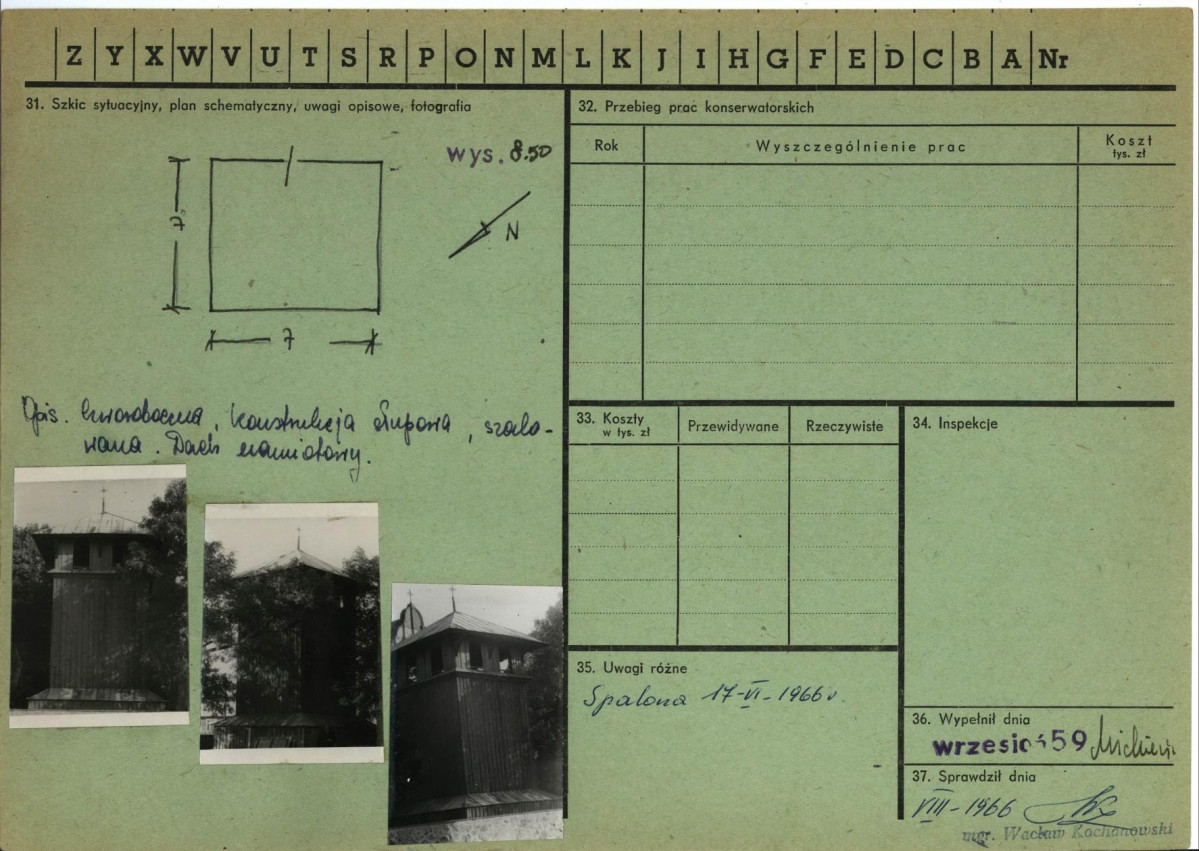 Z Y X W V U T S R P O N M L K J I H G F E D C B A Nr
31. Szkic sytuacyjny, plan schematyczny, uwagi opisowe, fotografia
wys. 8.50
7
N
7
Opis. Czworoboczna, konstrukcja słupowa, szalo-
wana. Dach namiotowy.
32. Przebieg prac konserwatorskich
Rok
Wyszczególnienie prac
Koszt
tys. zł
33. Koszty
w tys. zł
Przewidywane
Rzeczywiste
34. Inspekcje
35. Uwagi różne
Spalona 17-VI-1966 r.
36. Wypełnił dnia
wrzesień 59
37. Sprawdził dnia
VIII-1966
mgr. Wacław Kochanowski